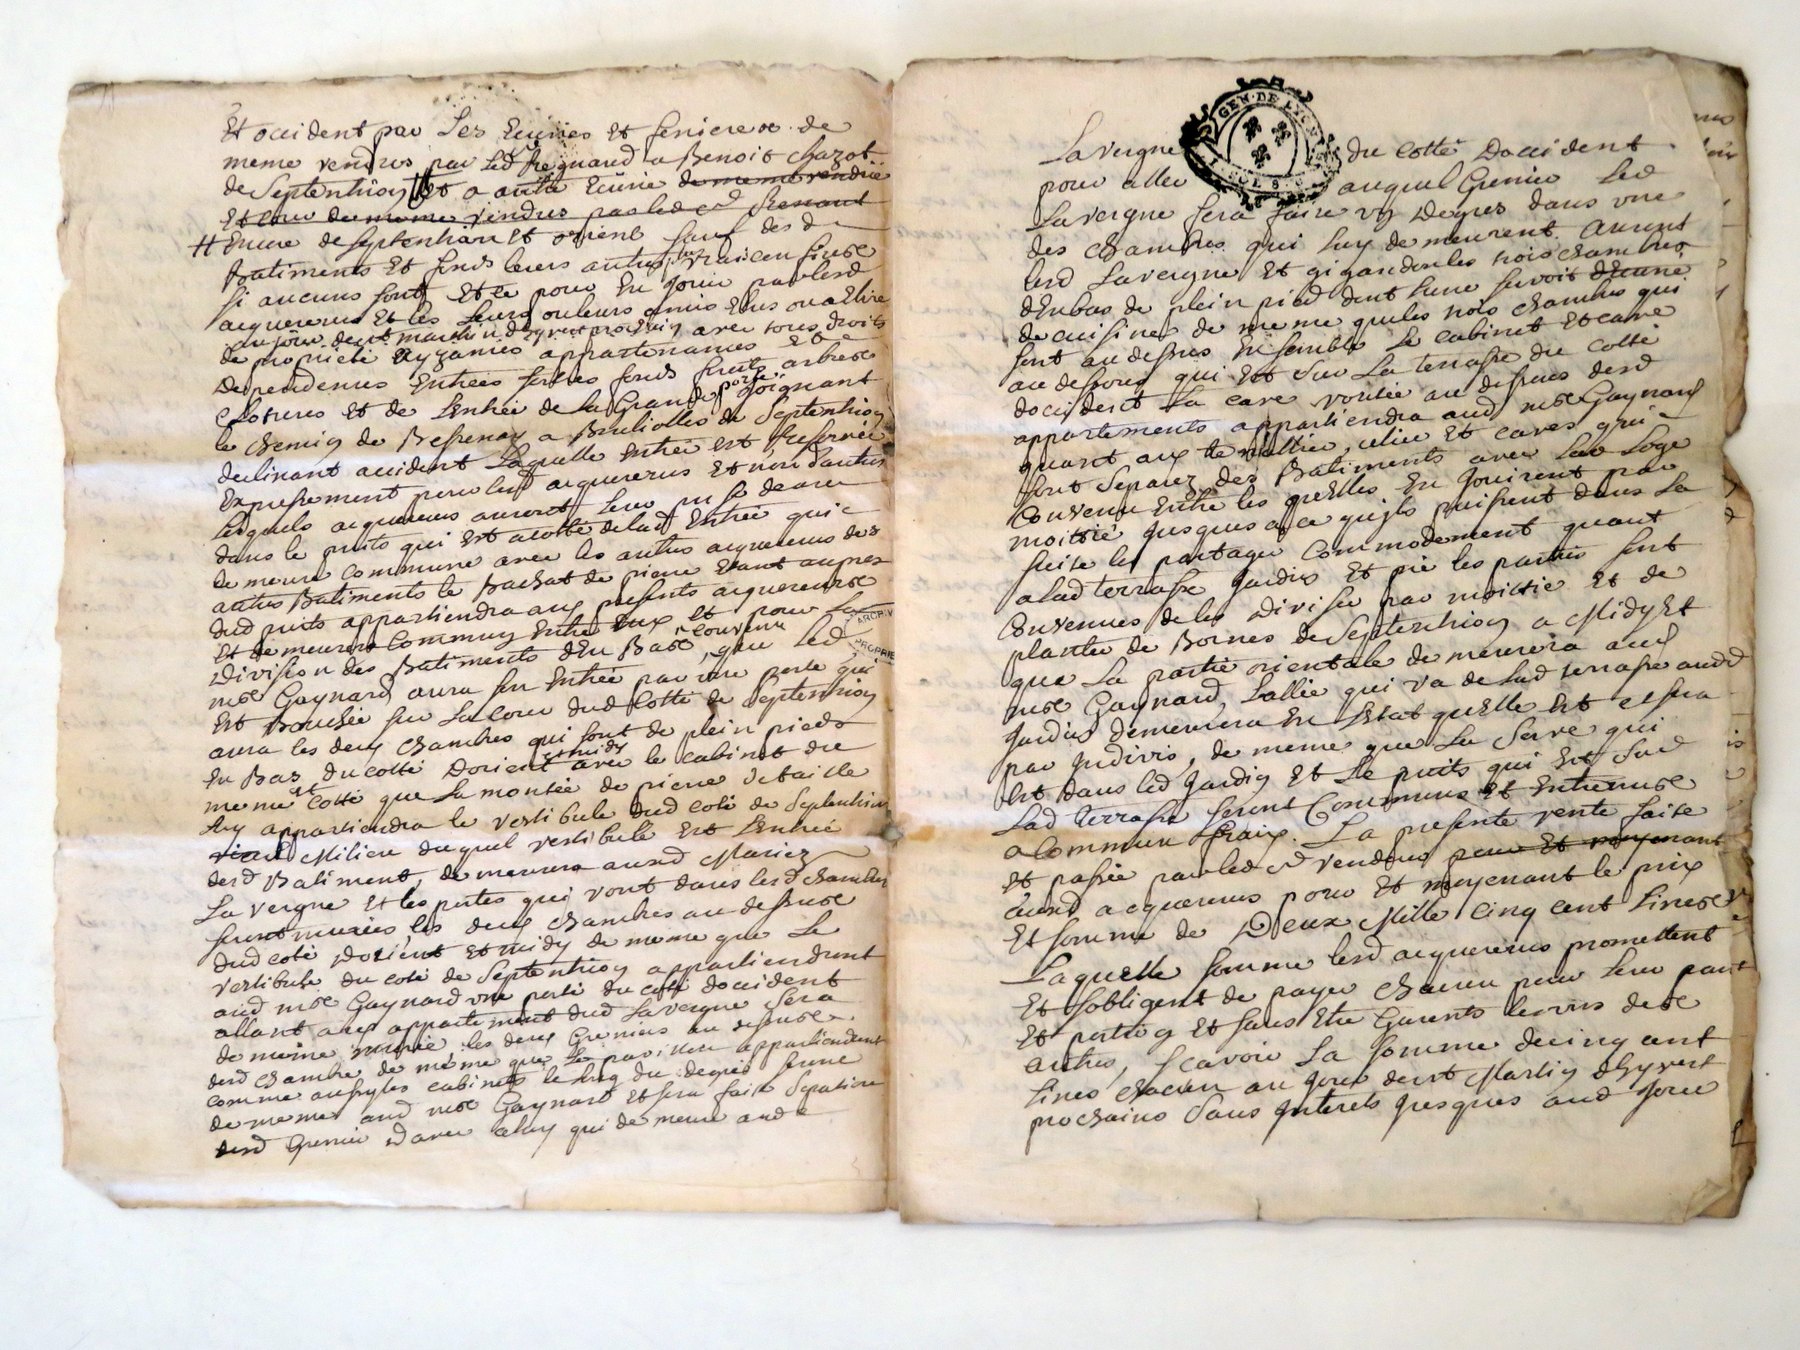 Et occident par Les Ecuries Et feniere &. de
meme vendus par led Sr Regnaud a Benoit Chazot
de Septentrion Et a autre Ecurie de meme vendüe
Et cour de meme vendus par led Sr
# Encore de septentrion Et orient sauf des d
Batiments Et fonds leurs autres plus vrais confins &
si aucuns sont Et ce pour En jouir par lesd
acquereurs Et les Leurs ou leurs amis Elus ou a Elire
au jour de st martin d'hyvert prochain avec tous droits
de proprieté aysances appartenances Et
Dependences Entrées sorties fonds fruits arbres &
Clotures Et de L'entrée de la Grande porte joignant
le Chemin de Bessenay a Brulliolles de Septentrion
declinant occident Laquelle Entrée est reservée
Expressement pour lesd acquereurs Et non d'autres
lesquels acquereurs auront leur prise deau
dans le puits qui est a cotté de lad Entrée qui
demeure Commune avec les autres acquereurs des
autres Batiments le Bachat de pierre Etant aupres
dud puits appartiendra aux presents acquereurs &
Et demeurera Commun Entre Eux Et pour La
Division des Batiments d'En Bas &, Convenu que led
mre Gaynard aura son Entrée par une porte qui
Est Bouchée sur La Cour dud Cotté de Septentrion
aura les deux Chambres qui sont de plein pieds
En Bas du cotté Dorient et midy avec le Cabinet du
meme cotté Et que La montée de pierre de taille
luy appartiendra le vestibule dud coté de Septentrion
Milieu duquel vestibule Est L'entrée
desd Batiment, demeurera aussd Mariez
La vergne Et les portes qui vont dans lesd Chambres
seront murées les deux Chambres au dessus &
dud coté Dorient Et midy de meme que Le
vestibule du coté de Septentrion appartiendront
aud mre Gaynard une porte du cotté doccident
allant aux appartement dud La vergne Sera
de meme murée les deux Greniers au dessus &
desd Chambre de meme que Le pavillon appartiendront
comme aussy les cabinets le long du degré
de meme aud mre Gaynard Et sera faite Separation
desd Grenier d'avec celuy qui demeure aud
La vergne du cotté Doccident
pour aller auquel Grenier Led
La vergne fera faire un Degres dans une
des Chambres qui luy demeurent auront
lesd La vergne Et les trois chambres
d'En bas de plein pied dont lune servoit
de cuisine de meme que les trois Chambres qui
sont au dessus Ensemble Le Cabinet Et cave
au dessous qui Est sur La terrasse du cotté
doccident La cave voutée au dessous desd
appartements appartiendra aud mre Gaynard
quant aux Et caves qui
sont Separez des Batiments avec Leur Loge
Convenu Entre les quelles En Jouiront par
moittié jusques a ce quils puissent dans La
suite les partager Commodement quant
a lad terrasse jardin Et pré les parties sont
Convenues de les Diviser par moittié Et de
planter de Bornes de Septentrion a Midy Et
que La partie orientale demeurera aud
mre Gaynard, L'allée qui va de Lad terrasse aud
Jardin demeurera En l'Etat quelle Est et sera
par Indivis, de meme que La Serve qui
Est dans led Jardin Et Le puits qui Est Sur
Lad terrasse Seront Communs Et Entretenus
a Commun fraix. La presente vente faite
Et passée par led Sr vendeur pour Et moyenant
auxd acquereurs pour Et moyenant le prix
Et somme de Deux Mille Cinq cent Livres &
Laquelle Somme lesd acquereurs promettent
Et sobligent de payer Chacun pour leur part
Et portion Et sans Etre Garents les uns des &
autres, Scavoir La Somme de cinq cent
Livres chacun au Jour de st Martin d'hyvert
prochains Sans Interets Jusques aud Jour
GEN. DE LYON